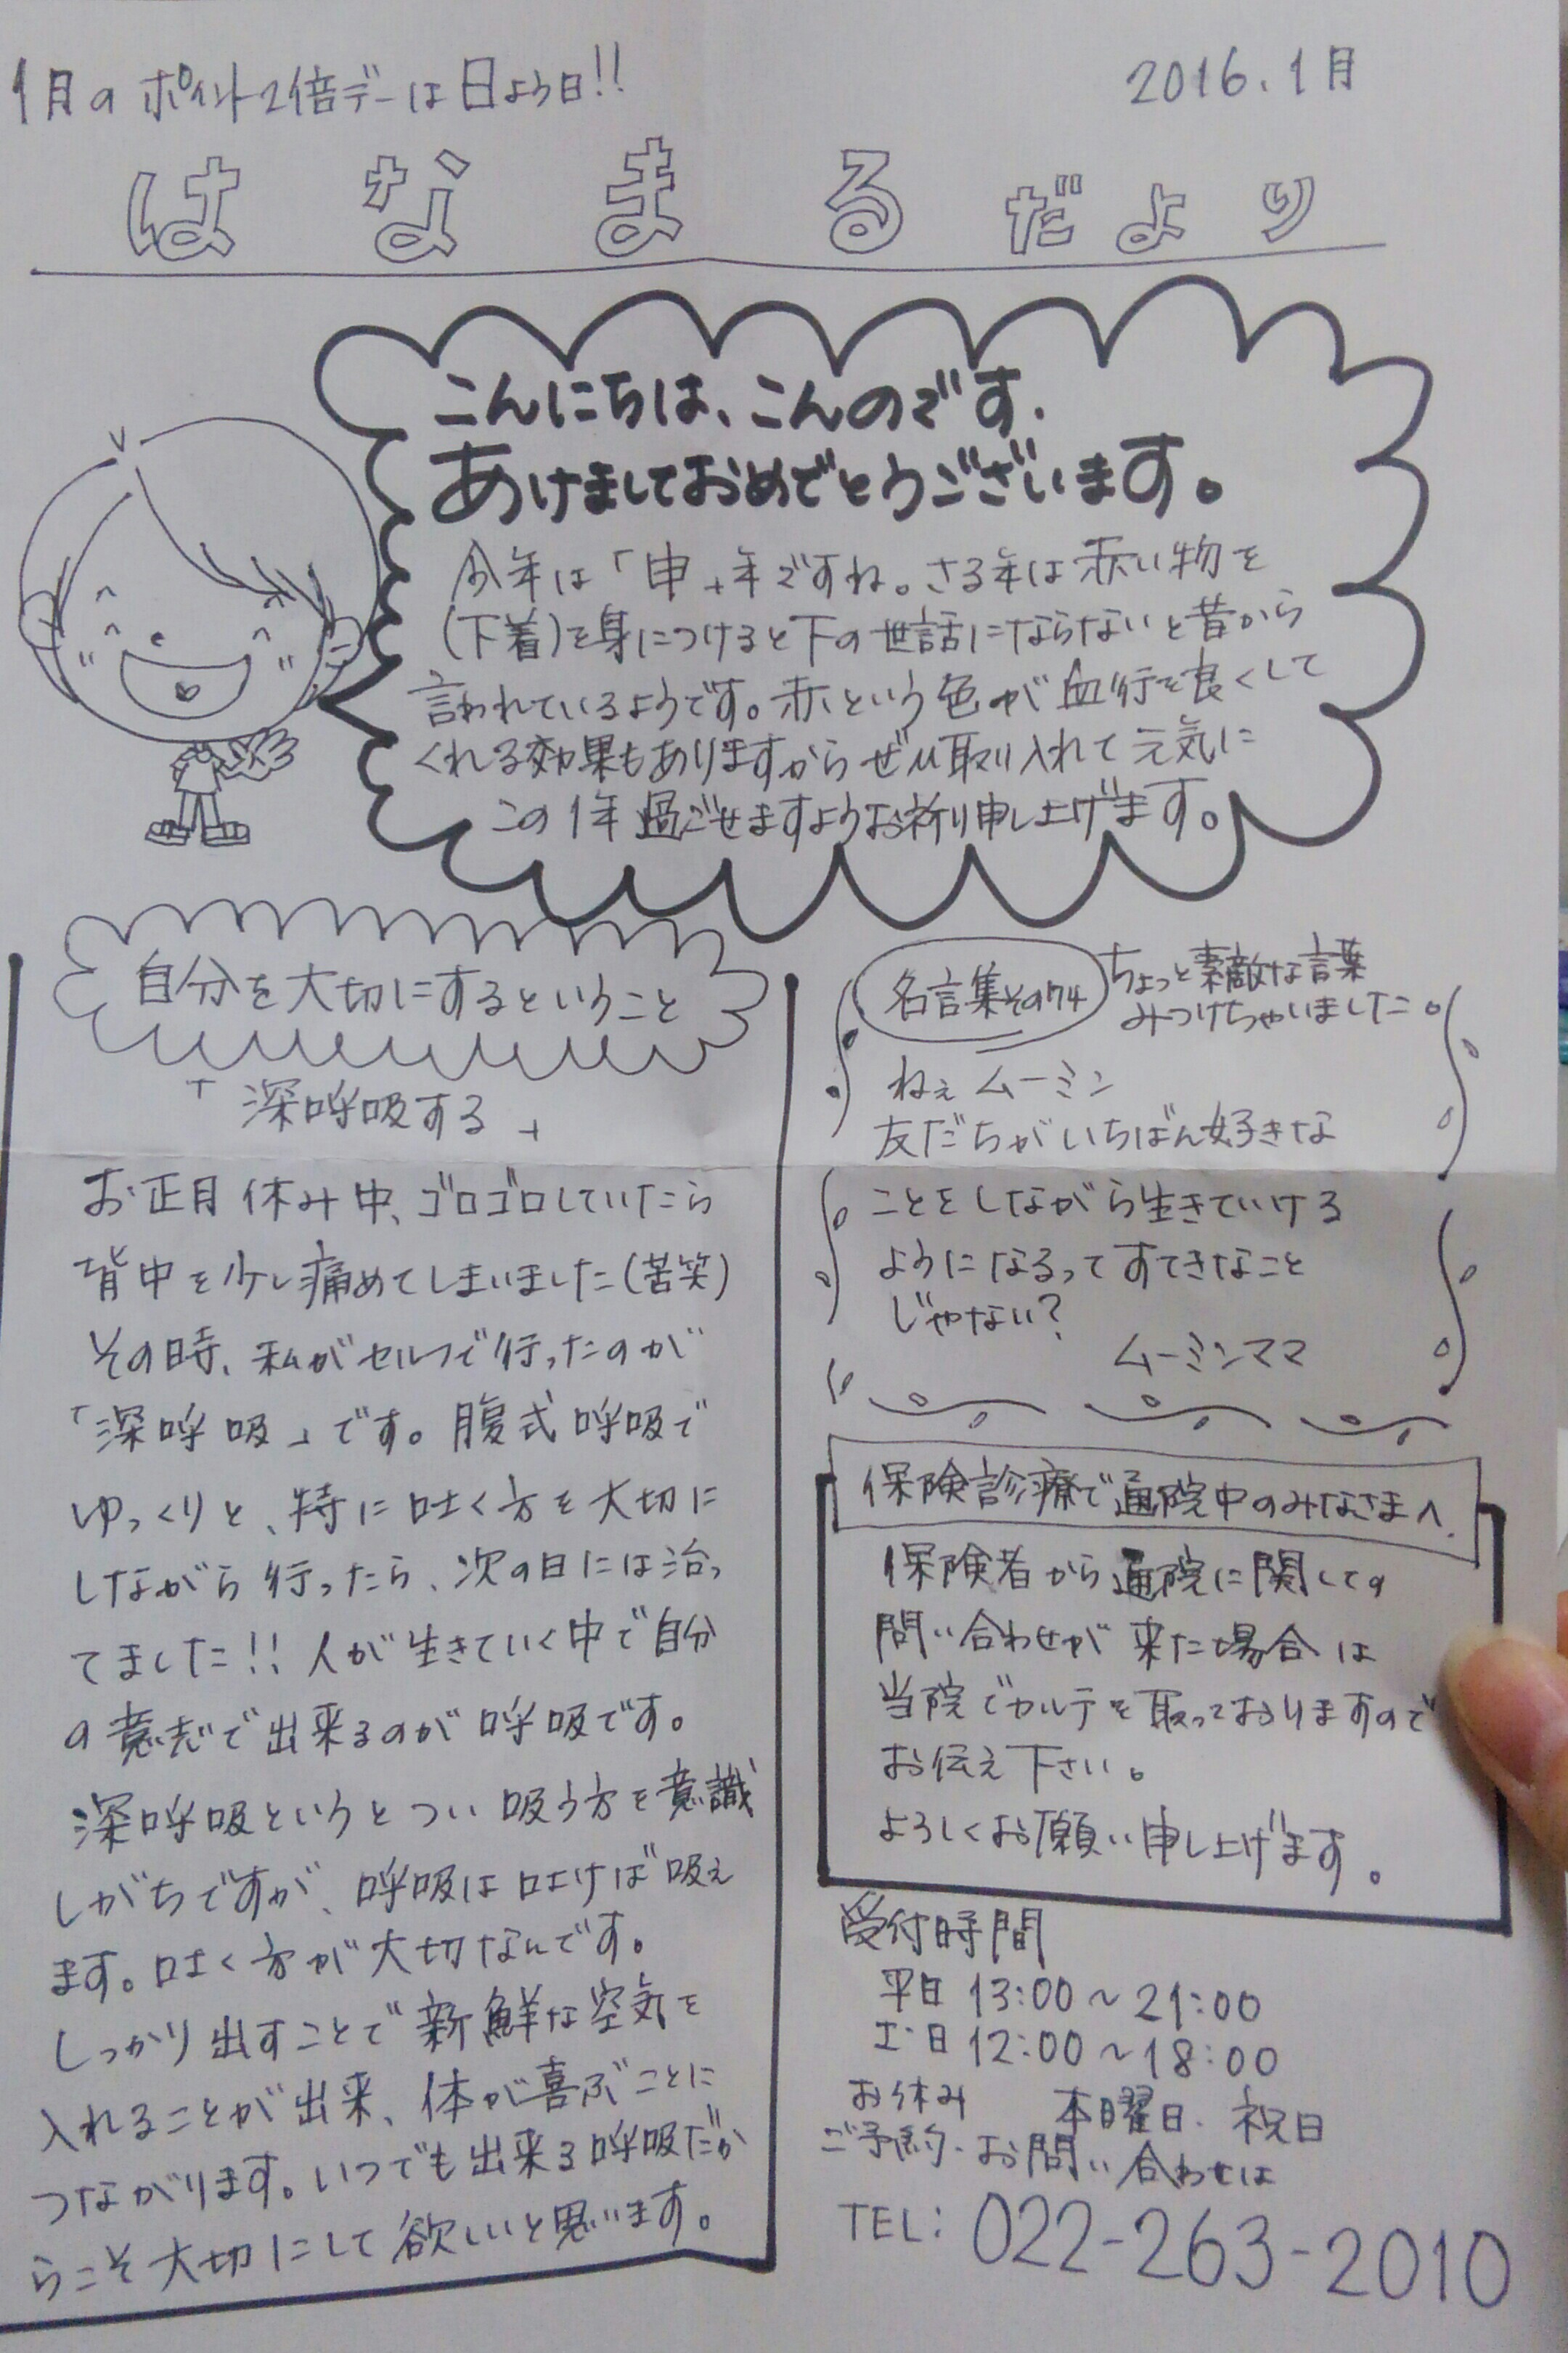 1月のポイント2倍デーは日よう日!!
2016.1月
はなまるだより
こんにちは、こんのです.
あけましておめでとうございます。
今年は「申」年ですね。さる年は赤い物を
(下着)を身につけると下の世話にならないと昔から
言われているようです。赤という色が血行を良くして
くれる効果もありますからぜひ取り入れて元気に
この1年過ごせますようお祈り申し上げます。
自分を大切にするということ
「深呼吸する」
お正月休み中、ゴロゴロしていたら
背中を少し痛めてしまいました(苦笑)
その時、私がセルフで行ったのが
「深呼吸」です。腹式呼吸で
ゆっくりと、特に吐く方を大切に
しながら行ったら、次の日には治っ
てました!!人が生きていく中で自分
の意志で出来るのが呼吸です。
深呼吸というとつい吸う方を意識
しがちですが、呼吸は吐けば吸え
ます。吐く方が大切なんです。
しっかり出すことで新鮮な空気を
入れることが出来、体が喜ぶことに
つながります。いつでも出来る呼吸だか
らこそ大切にして欲しいと思います。
名言集その74
ちょっと素敵な言葉
みつけちゃいました。
ねぇムーミン
友だちがいちばん好きな
ことをしながら生きていける
ようになるってすてきなこと
じゃない?
ムーミンママ
保険診療で通院中のみなさまへ
保険者から通院に関しての
問い合わせが来た場合は
当院でカルテを取っておりますので
お伝え下さい。
よろしくお願い申し上げます。
受付時間
平日 13:00~21:00
土・日 12:00~18:00
お休み 木曜日・祝日
ご予約・お問い合わせは
TEL: 022-263-2010